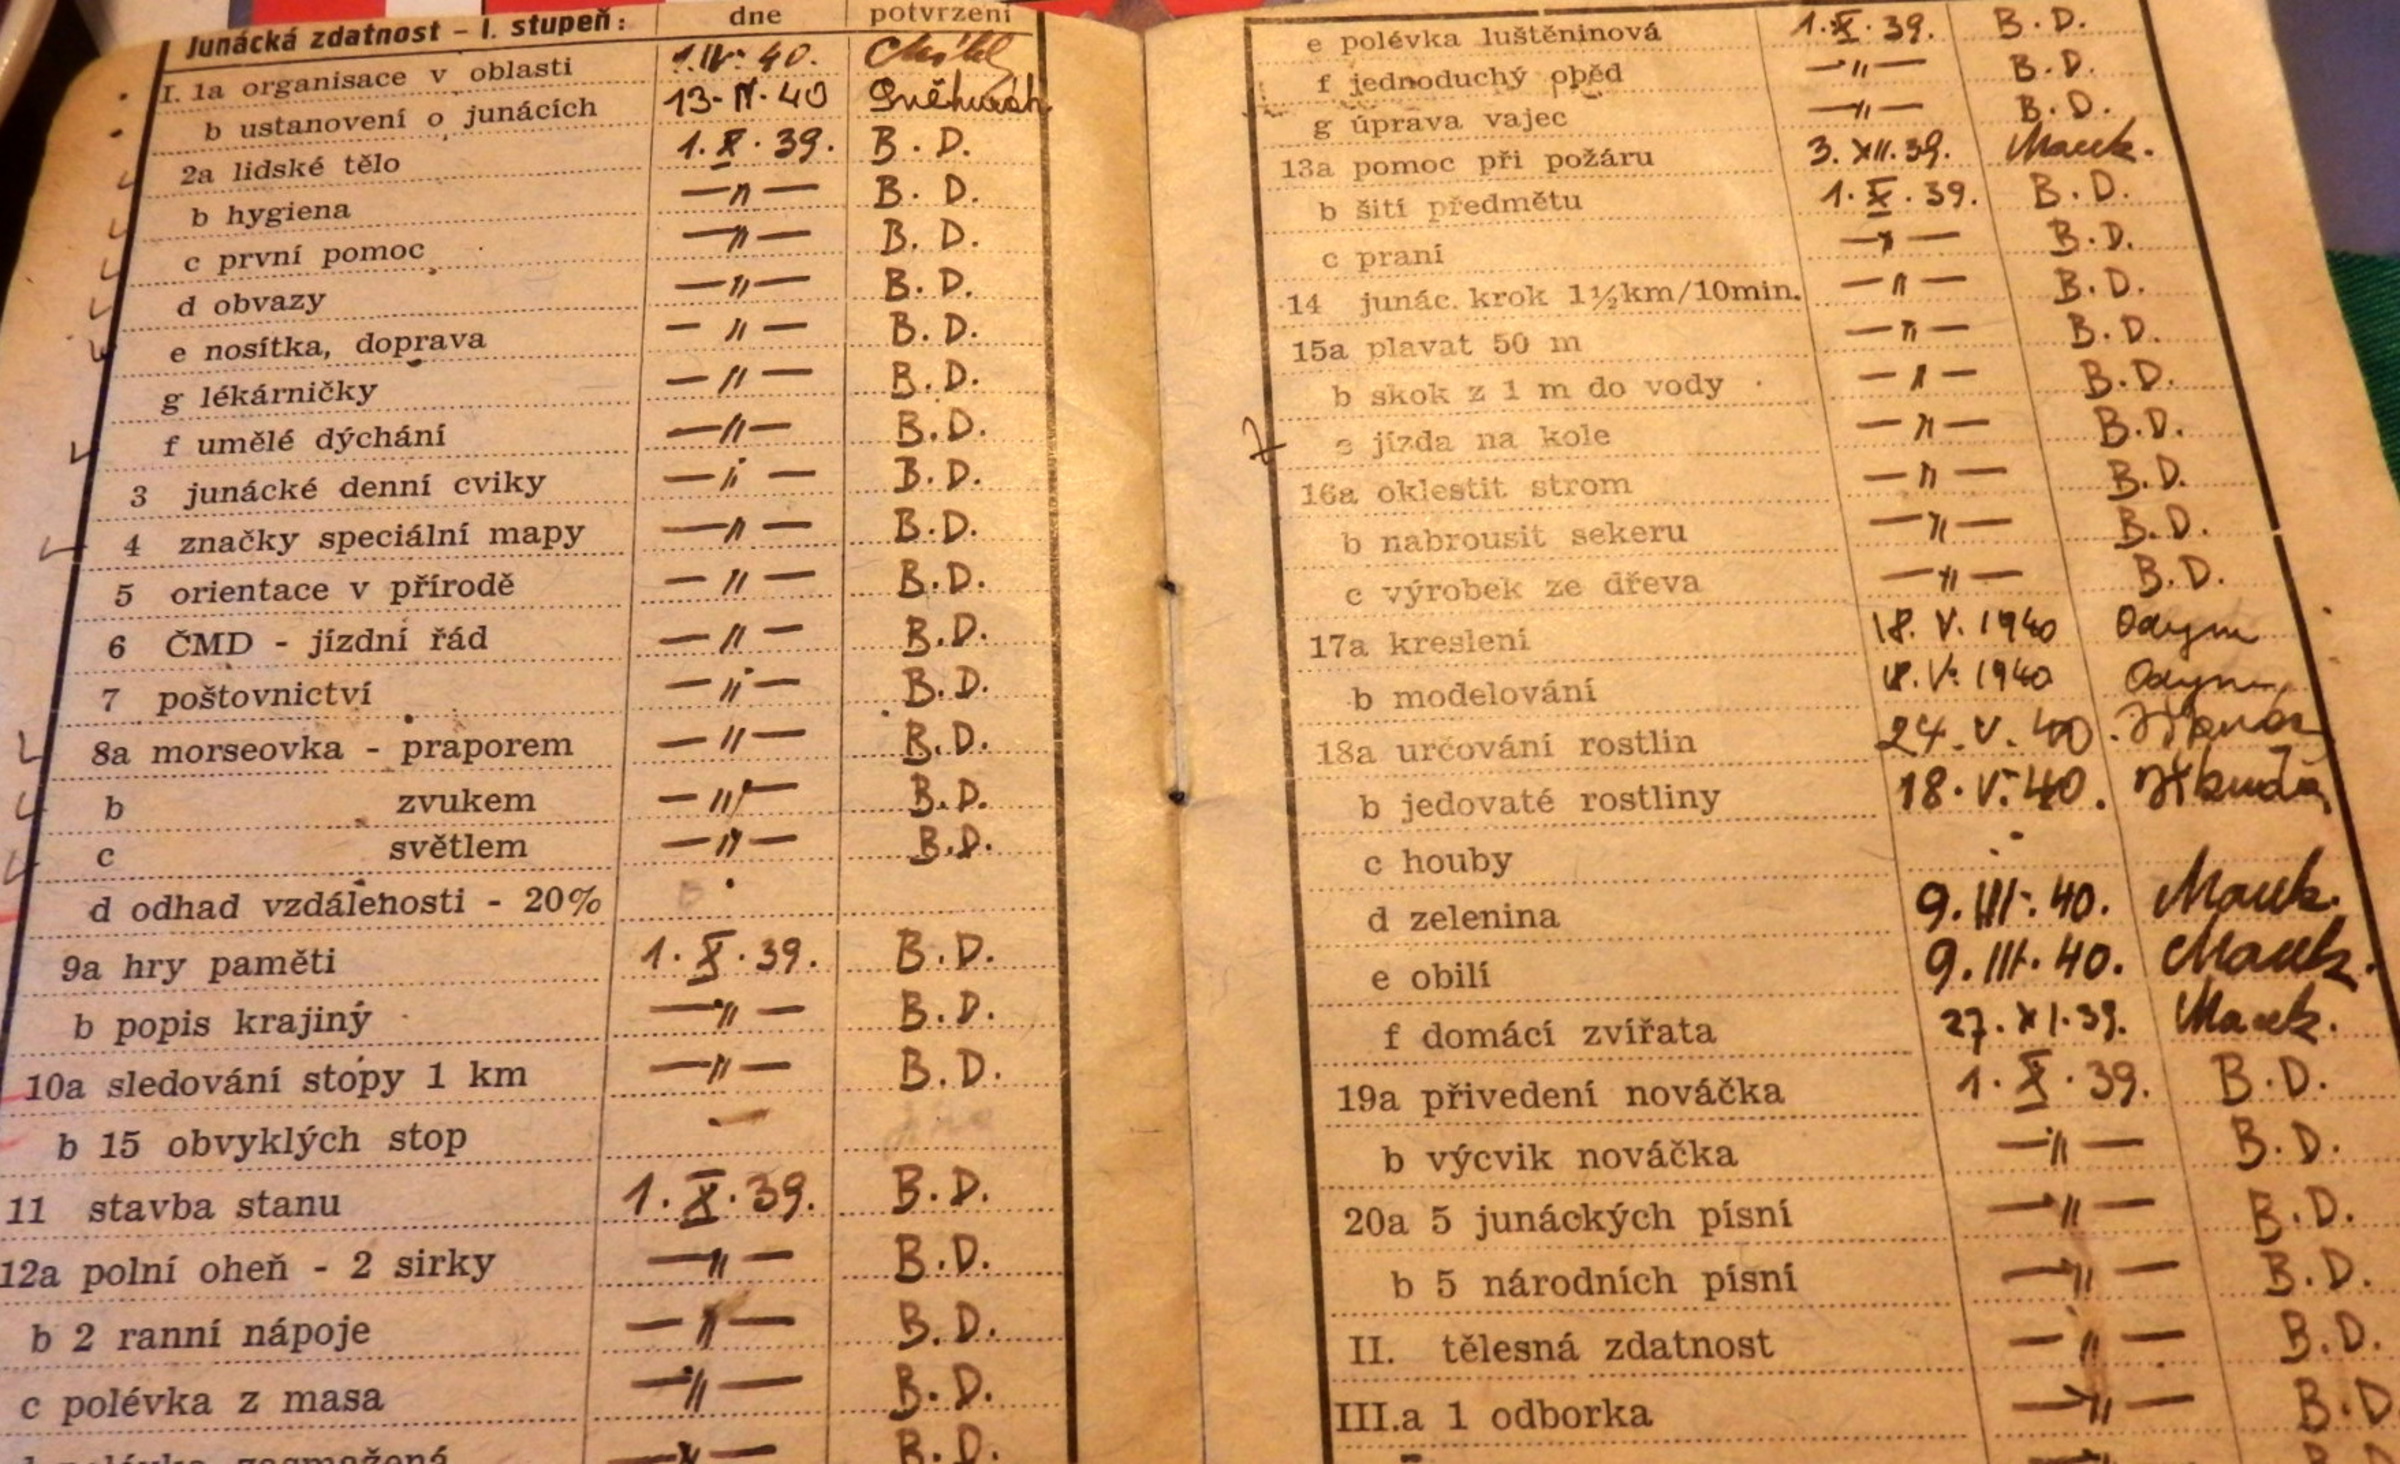 Junácká zdatnost – I. stupeň: dne potvrzení
I. 1a organisace v oblasti 1. IV. 40.
b ustanovení o junácích 13. IV. 40
2a lidské tělo 1. X. 39. B. D.
b hygiena —〃— B. D.
c první pomoc —〃— B. D.
d obvazy —〃— B. D.
e nosítka, doprava —〃— B. D.
g lékárničky —〃— B. D.
f umělé dýchání —〃— B. D.
3 junácké denní cviky —〃— B. D.
4 značky speciální mapy —〃— B. D.
5 orientace v přírodě —〃— B. D.
6 ČMD - jízdní řád —〃— B. D.
7 poštovnictví —〃— B. D.
8a morseovka - praporem —〃— B. D.
b zvukem —〃— B. D.
c světlem —〃— B. D.
d odhad vzdálenosti - 20%
9a hry paměti 1. X. 39. B. D.
b popis krajiny —〃— B. D.
10a sledování stopy 1 km —〃— B. D.
b 15 obvyklých stop
11 stavba stanu 1. X. 39. B. D.
12a polní oheň - 2 sirky —〃— B. D.
b 2 ranní nápoje —〃— B. D.
c polévka z masa —〃— B. D.
polévka zasmažená —〃— B. D.
e polévka luštěninová 1. X. 39. B. D.
f jednoduchý oběd —〃— B. D.
g úprava vajec —〃— B. D.
13a pomoc při požáru 3. XII. 39. Mauk.
b šití předmětu 1. X. 39. B. D.
c praní —〃— B. D.
14 junác. krok 1½km/10min. —〃— B. D.
15a plavat 50 m —〃— B. D.
b skok z 1 m do vody —〃— B. D.
c jízda na kole —〃— B. D.
16a oklestit strom —〃— B. D.
b nabrousit sekeru —〃— B. D.
c výrobek ze dřeva —〃— B. D.
17a kreslení 18. V. 1940
b modelování 18. V. 1940
18a určování rostlin 24. V. 40.
b jedovaté rostliny 18. V. 40.
c houby
d zelenina 9. III. 40. Mauk.
e obilí 9. III. 40. Mauk.
f domácí zvířata 27. XI. 39. Mauk.
19a přivedení nováčka 1. X. 39. B. D.
b výcvik nováčka —〃— B. D.
20a 5 junáckých písní —〃— B. D.
b 5 národních písní —〃— B. D.
II. tělesná zdatnost —〃— B. D.
III.a 1 odborka —〃— B. D